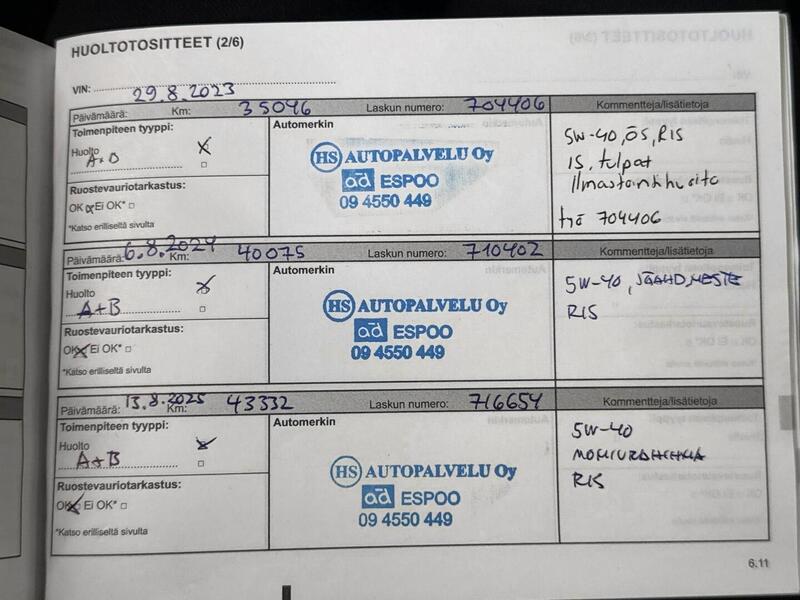 HUOLTOTOSITTEET (2/6)
VIN:
29.8.2023
Päivämäärä: Km: 35046 Laskun numero: 704406 Kommentteja/lisätietoja
Toimenpiteen tyyppi:
Huolto
A+B
Ruostevauriotarkastus:
OK Ei OK*
*Katso erilliseltä sivulta
Automerkin
HS AUTOPALVELU Oy
ad ESPOO
09 4550 449
5W-40, ÖS, RIS
IS, tulpat
Ilmastointihuolto
704406
Päivämäärä: 6.8.2024 Km: 40075 Laskun numero: 710402 Kommentteja/lisätietoja
Toimenpiteen tyyppi:
Huolto
A+B
Ruostevauriotarkastus:
OK Ei OK*
*Katso erilliseltä sivulta
Automerkin
HS AUTOPALVELU Oy
ad ESPOO
09 4550 449
5W-40, JÄÄHD.NESTE
RIS
Päivämäärä: 13.8.2025 Km: 43332 Laskun numero: 716654 Kommentteja/lisätietoja
Toimenpiteen tyyppi:
Huolto
A+B
Ruostevauriotarkastus:
OK Ei OK*
*Katso erilliseltä sivulta
Automerkin
HS AUTOPALVELU Oy
ad ESPOO
09 4550 449
5W-40
MONIURAHIHNA
RIS
6.11